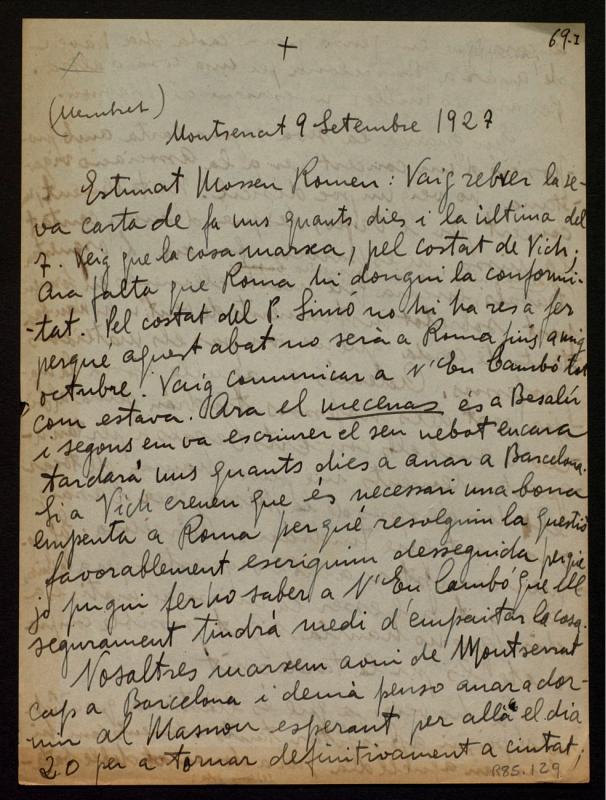 69-I
+
(Membret)
Montserrat 9 Setembre 1927
Estimat Mossen Romeu: Vaig rebrer la se-
va carta de fa uns quants dies i la última del
7. Veig que la cosa marxa, pel costat de Vich;
Ara falta que Roma hi dongui la conformi-
tat. Pel costat del P. Sunyó no hi ha res a fer
perqué aquest abat no serà a Roma fins a mig
octubre. Vaig comunicar a N'En Cambó tot
com estava. Ara el mecenas és a Besalú
i segons em va escriurer el seu nebot encara
tardará uns quants dies a anar a Barcelona.
Si a Vich creuen que és necessari una bona
empenta a Roma perqué resolguin la questió
favorablement escriguim desseguida perque
jo pugui ferho saber a N'En Cambó que ell
segurament tindrà medi d'empaitar la cosa.
Nosaltres marxem avui de Montserrat
cap a Barcelona i demà penso anar a dor-
mir al Masnou esperant per allà el dia
20 per a tornar definitivament a ciutat;
R85.129